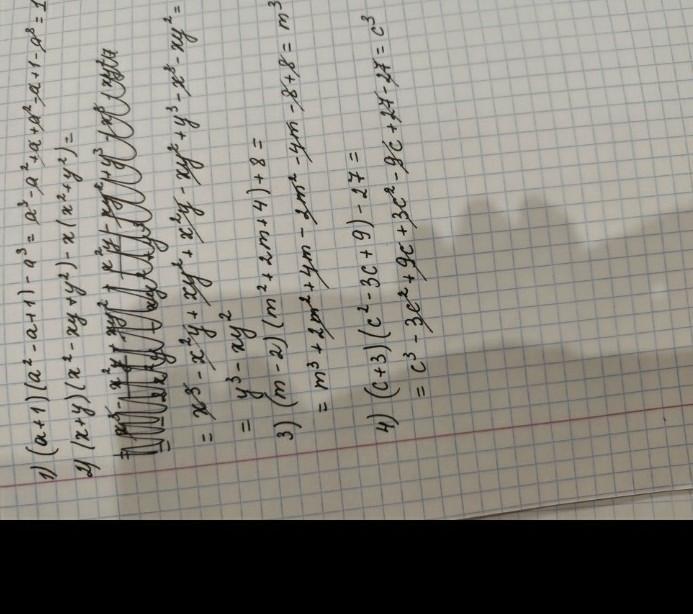 1) (a+1)(a²-a+1)-a³ = a³-a²+a+a²-a+1-a³=1
2) (x+y)(x²-xy+y²)-x(x²+y²)=
= x³-x²y+xy²+x²y-xy²+y³-x³-xy²=
= y³-xy²
3) (m-2)(m²+2m+4)+8=
= m³+2m²+4m-2m²-4m-8+8=m³
4) (c+3)(c²-3c+9)-27=
= c³-3c²+9c+3c²-9c+27-27=c³